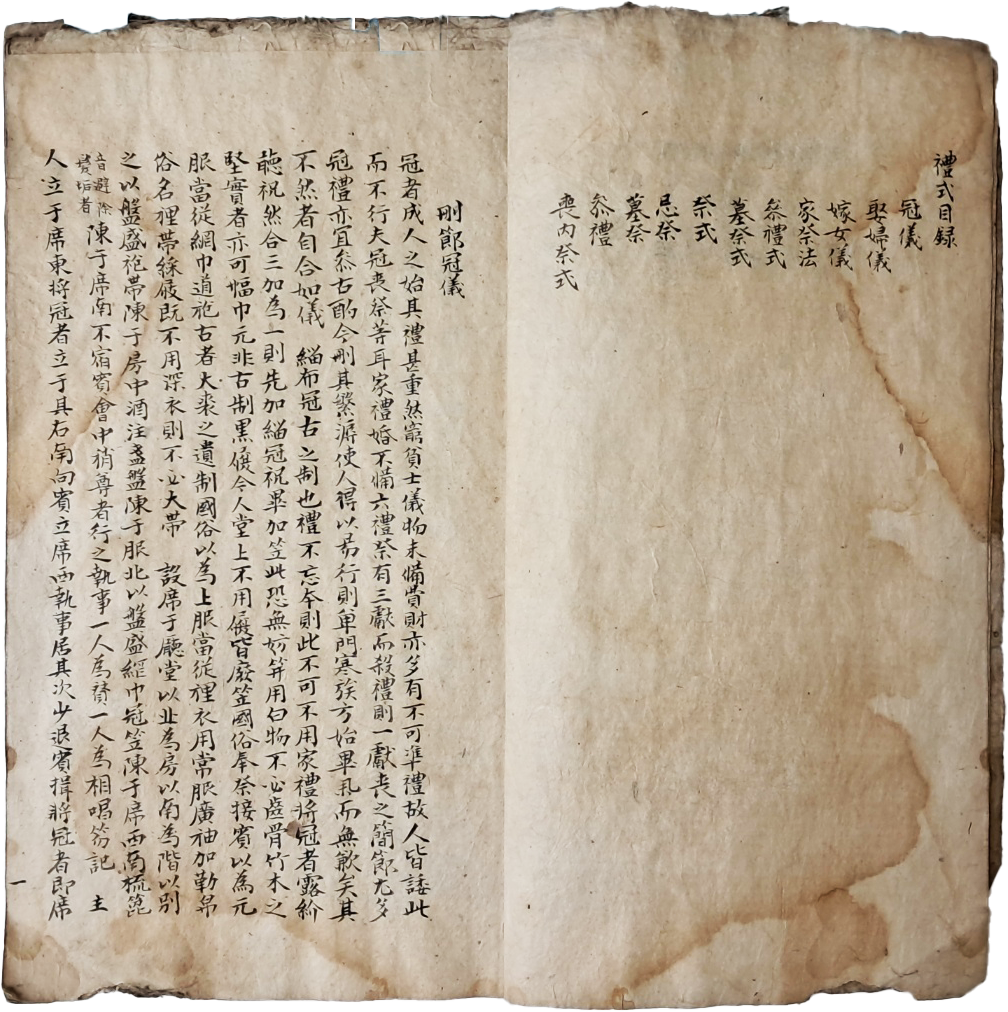 禮式目録
冠儀
娶婦儀
嫁女儀
家祭法
叅禮式
墓祭式
祭式
忌祭
墓祭
叅禮
喪內祭式
刪節冠儀
冠者成人之始其禮甚重然窮貧士儀物未備費財亦多有不可準禮故人皆諉此
而不行夫冠喪祭等耳家禮婚不備六禮祭有三獻而殺禮則一獻喪之簡節尤多
冠禮亦宜叅古酌今刪其繁 使人得以易行則單門寒族方始畢 而無歉矣其
不然者自合如儀 緇布冠古之制也禮不忘本則此不可不用家禮將冠者露紒
聽祝然合三加為一則先加緇冠祝畢加笠此恐無妨笄用白物不必齒骨竹木之
堅實者亦可幅巾元非古制黒履今人堂上不用屐皆廢笠國俗奉祭接賓以為元
服當從網巾道袍古者大裘之遺制國俗以為上服當從裡衣用常服廣袖加勒帛
俗名裡帶綵屐既不用深衣則不必大帶 設席于廳堂以北為房以南為階以別
之以盤盛袍帶陳于房中酒注盞盤陳于服北以盤盛緇巾冠笠陳于席西南梳篦
音避除
髮垢者
陳于席南不宿賓會中稍尊者行之執事一人為賛一人為相唱笏記 主
人立于席東將冠者立于其右南向賓立席西執事居其次少退賓揖將冠者即席
一